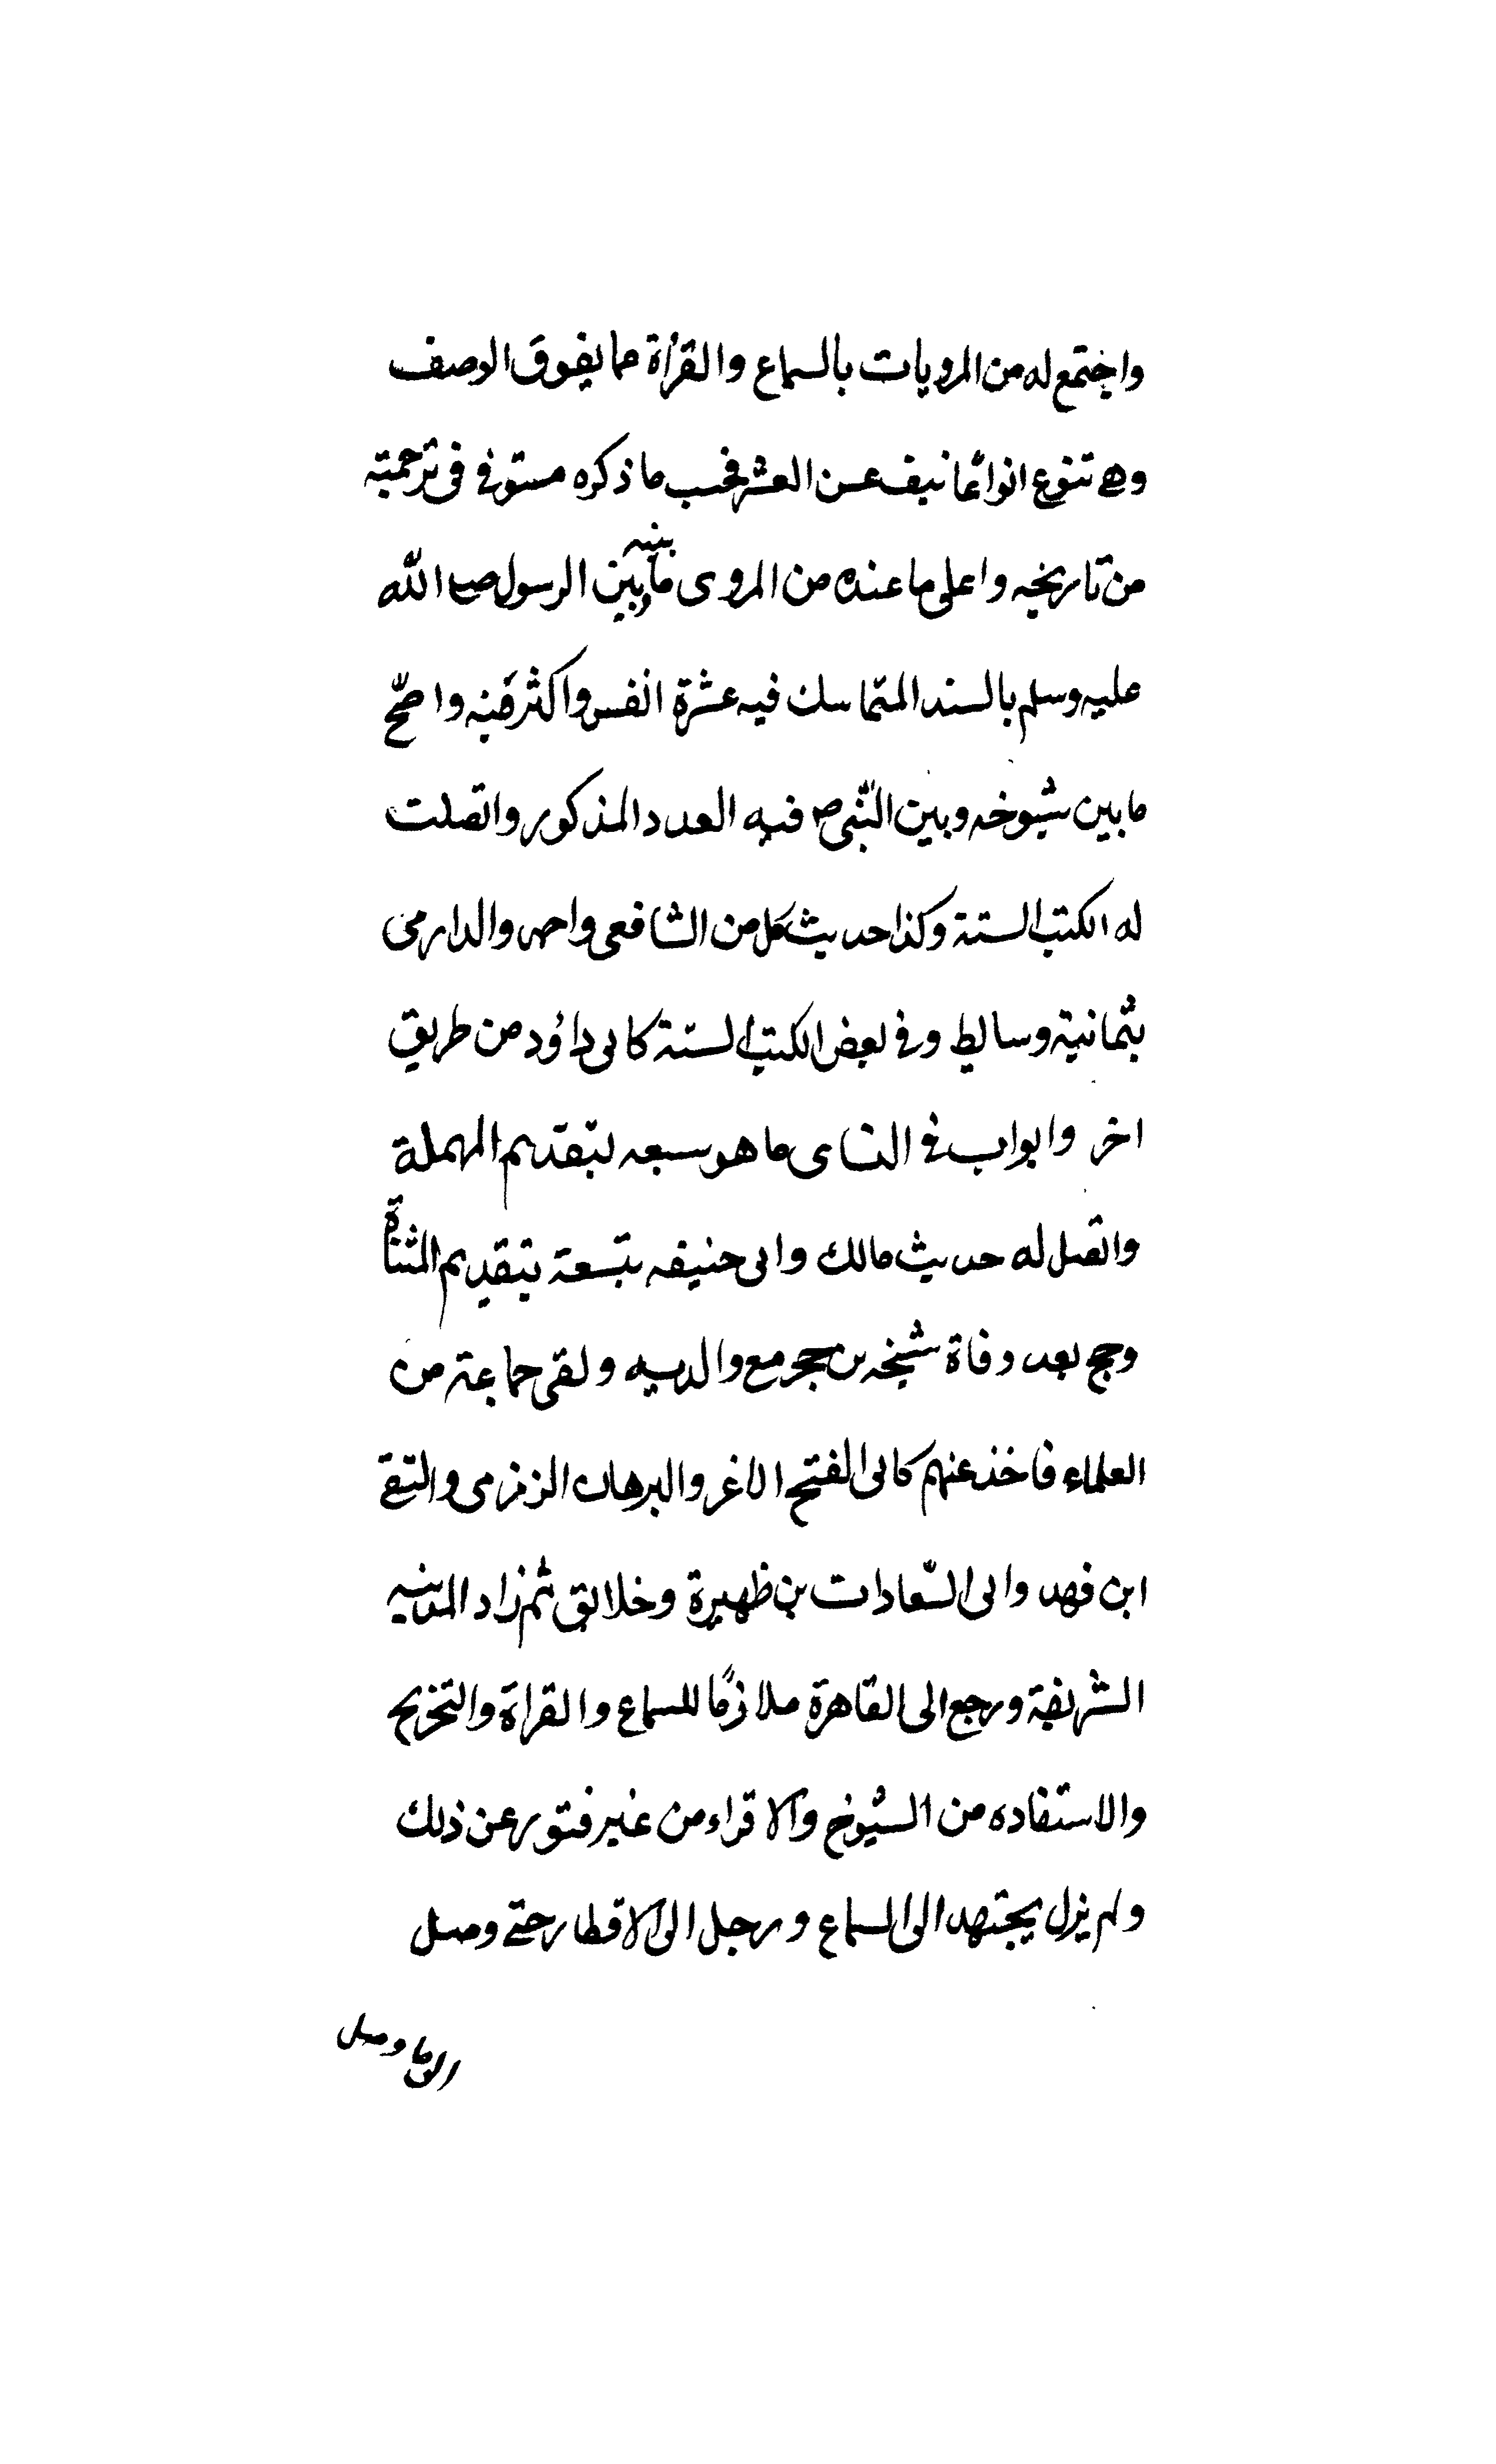 واجتمع له من المرويات بالسماع والقرأة مما يفوق الوصف
وهي تتنوع انواعًا نيف عن العشر فحسب ما ذكره مستوفي في ترجمته
من تاريخه واعلى ما عنده من المروى ما بينه وبين الرسول صلى الله
عليه وسلم بالسند المتماسك فيه عشرة انفس واكثر منه واصح
ما بين شيوخه وبين النّبى ص فيه العدد المذكور واتصلت
له الكتب الستة وكذا حديث كل من الشافعى واحمد والدارمى
بثمانية وسايط وفي بعض الكتب الستة كابى داؤد من طريق
اخر وابواب في النساى ما هو سبعه بتقديم المهملة
واتصل له حديث مالك وابى حنيفه بتسعة بتقديم المثناة
وحج بعد وفاة شيخه بن حجر مع والديه ولقى جماعة من
العلماء فاخذ عنهم كابى الفتح الاغر والبرهان الزمزمى والتقي
ابن فهد وابى السّعادات بن ظهيرة وخلايق ثم زاد المدينه
الشريفة ورجع الى القاهرة ملازمًا للسماع والقراة والتخريج
والاستفاده من الشيوخ والاقراء من غير فتور عن ذلك
ولم يزل يجتهد الى السماع ورحل الى الاقطار حتى وصل